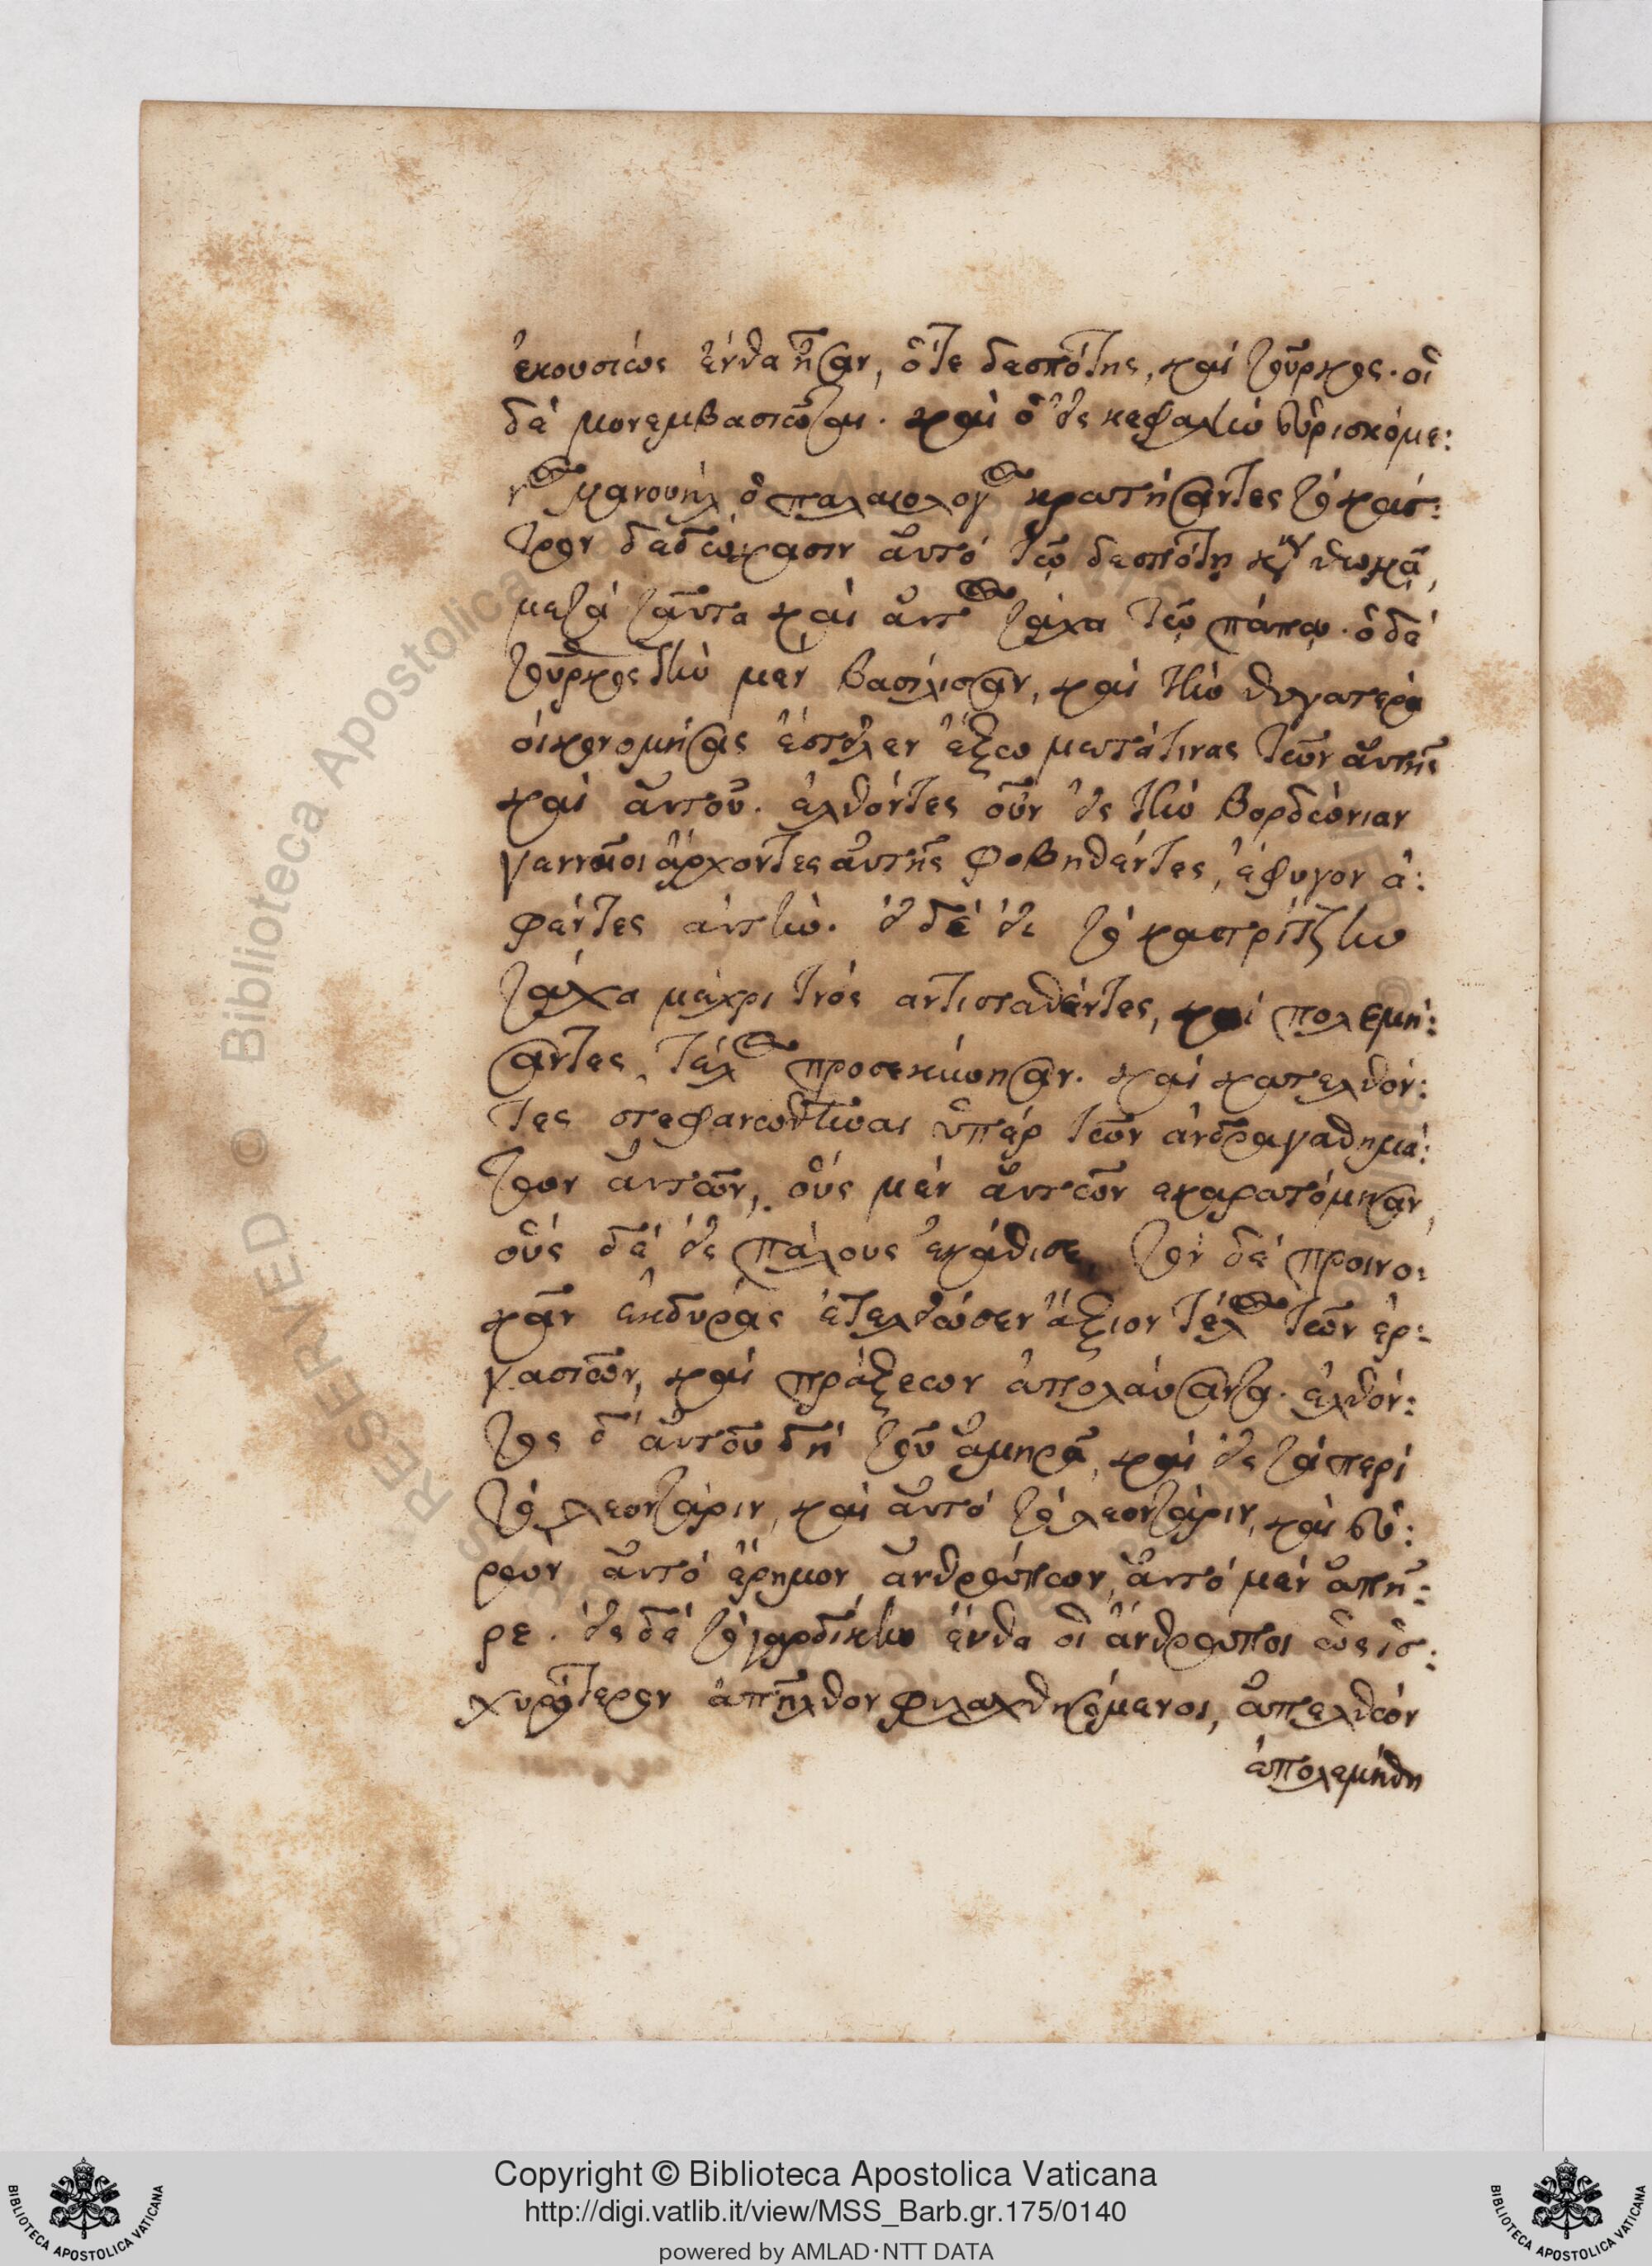 ἑκουσίως ἔνθα ἦσαν, ὅ τε δεσπότης, καὶ τοῦρκος. οἱ
δὲ μονεμβασιῶται. καὶ ὁ εἰς κεφαλὴν εὑρισκόμε:
νος μανουὴλ ὁ παλαιολόγος κρατήσαντες τὸ κάσ:
τρον δεδώκασιν αὐτὸ τῷ δεσπότῃ κὺρ θωμᾷ,
μετὰ ταῦτα καὶ αὐτὸς τάχα τῷ πάπᾳ. ὁ δὲ
τοῦρκος τὴν μὲν βασίλισαν, καὶ τὴν θυγατέρα
οἰκονομήσας ἔστειλεν ἔξω μετά τινας τῶν αὐτῆς
καὶ αὐτοῦ. ἐλθόντες οὖν εἰς τὴν βορδώνιαν
γενναῖοι ἄρχοντες αὐτῆς φοβηθέντες, ἔφυγον ἀ:
φέντες αὐτὴν. εἰ δὲ εἰς τὸ καστρίτζην
τάχα μέχρι τινὸς αντισταθέντες, καὶ πολεμή:
σαντες, τέλος προσεκύνησαν. καὶ κατελθόν:
τες στεφανωθῆναι ὑπὲρ τῶν ἀνδραγαθημά:
των αὐτῶν, οὓς μὲν αὐτῶν εκαρατόμησαν,
οὓς δὲ εἰς πάλους ἐκάθισε, τὸν δὲ προινο:
κᾶν ἐκδυρὰς ἐτελείωσεν ἄξιον τέλος τῶν ἐρ:
γασιῶν, καὶ πράξεων ἀπολαύσαντα. ἐλθόν:
τος δ' αὐτοῦ δὴ τοῦ ἀμηρᾶ, καὶ εἰς τὰ περὶ
τὸ λεοντάριν, καὶ αὐτὸ τὸ λεοντάριν, καὶ εὑ:
ρὼν αὐτὸ ἔρημον ἀνθρώπων, αὐτὸ μὲν ἀπῆ:
ρε. εἰς δὲ τὸ γαρδίκην ἔνθα οἱ ἄνθρωποι ὡς ἰσ:
χυρότερον ἀπῆλθον φιλαχθησόμενοι, ἀπελθὼν
ἀπολεμήθη
Copyright © Biblioteca Apostolica Vaticana
http://digi.vatlib.it/view/MSS_Barb.gr.175/0140
powered by AMLAD·NTT DATA